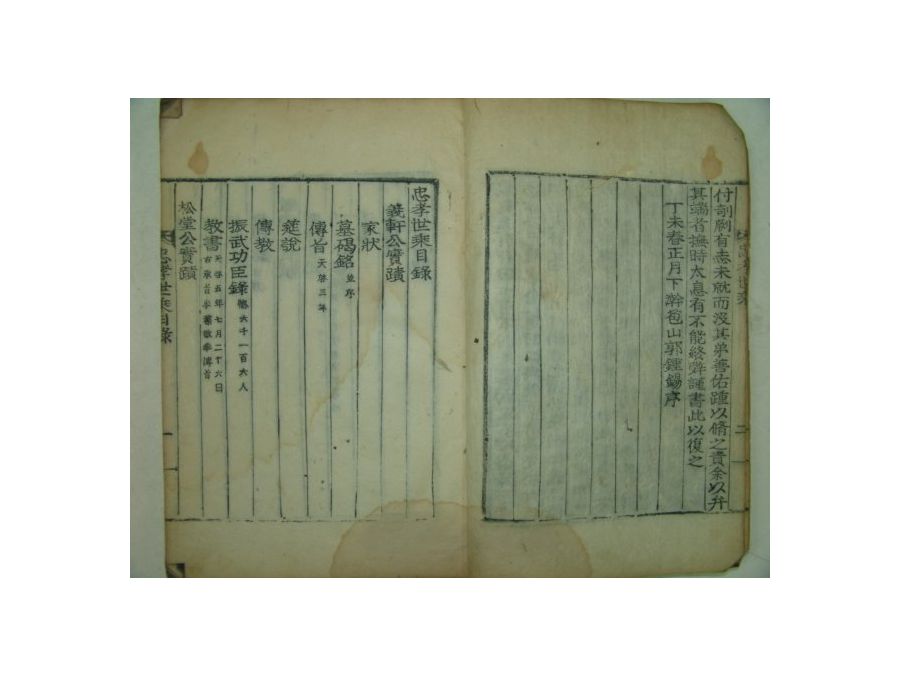 付剞劂有志未就而沒其弟善佑踵以脩之責余以弁
其端者撫時太息有不能終辭謹書此以復之
丁未春正月下澣苞山郭鍾錫序
忠孝世乘目錄
義軒公實蹟
家狀
墓碣銘 並序
傳旨 天啓三年
筵說
傳敎
振武功臣錄 六千一百六人
敎書 天啓五年七月二十六日
右承旨李 敬奉傳旨
松堂公實蹟
忠孝世乘目錄 一